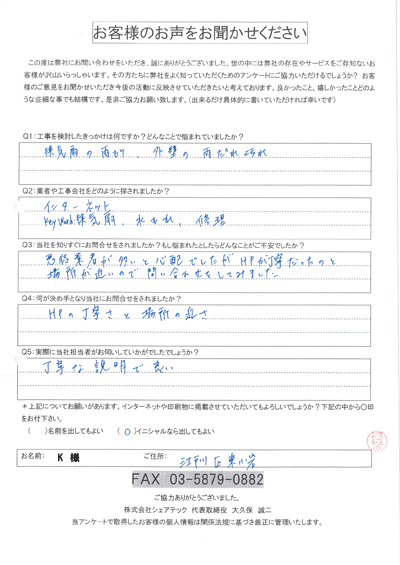 お客様のお声をお聞かせください
この度は弊社にお問い合わせをいただき、誠にありがとうございました。世の中には弊社の存在やサービスをご存知ないお
客様が沢山いらっしゃいます。その方たちに弊社をよく知っていただくためのアンケートにご協力いただけるでしょうか? お客
様のご意見をお聞かせいただき今後の活動に反映させていただきたいと考えております。良かったこと、嬉しかったことどのよ
うな些細な事でも結構です。是非ご協力お願い致します。(出来るだけ具体的に書いていただければ幸いです)
Q1:工事を検討したきっかけは何ですか?どんなことで悩まれていましたか?
換気扇の雨もり、外壁の雨だれ汚れ
Q2:業者や工事会社をどのように探されましたか?
インターネット
Key Word:換気扇、水もれ、修理
Q3:当社を知りすぐにお問合せをされましたか?もし悩まれたとしたらどんなことがご不安でしたか?
悪徳業者が多いと心配でしたがHPが丁寧だったのと
場所が近いので問い合わせをしてみました
Q4:何が決め手となり当社にお問合せをされましたか?
HPの丁寧さと場所の近さ
Q5:実際に当社担当者がお伺いしていかがでしたでしょうか?
丁寧な説明で良い
*上記についてお願いがあります。インターネットや印刷物に掲載させていただいてもよろしいでしょうか?下記の中から〇印
をお付下さい。
( )名前を出してもよい ( O )イニシャルなら出してもよい
お名前: K 様 ご住所: 江戸川区東小岩
FAX 03-5879-0882
ご協力ありがとうございました。
株式会社シェアテック 代表取締役 大久保 誠二
当アンケートで取得したお客様の個人情報は関係法規に基づき厳正に管理いたします。